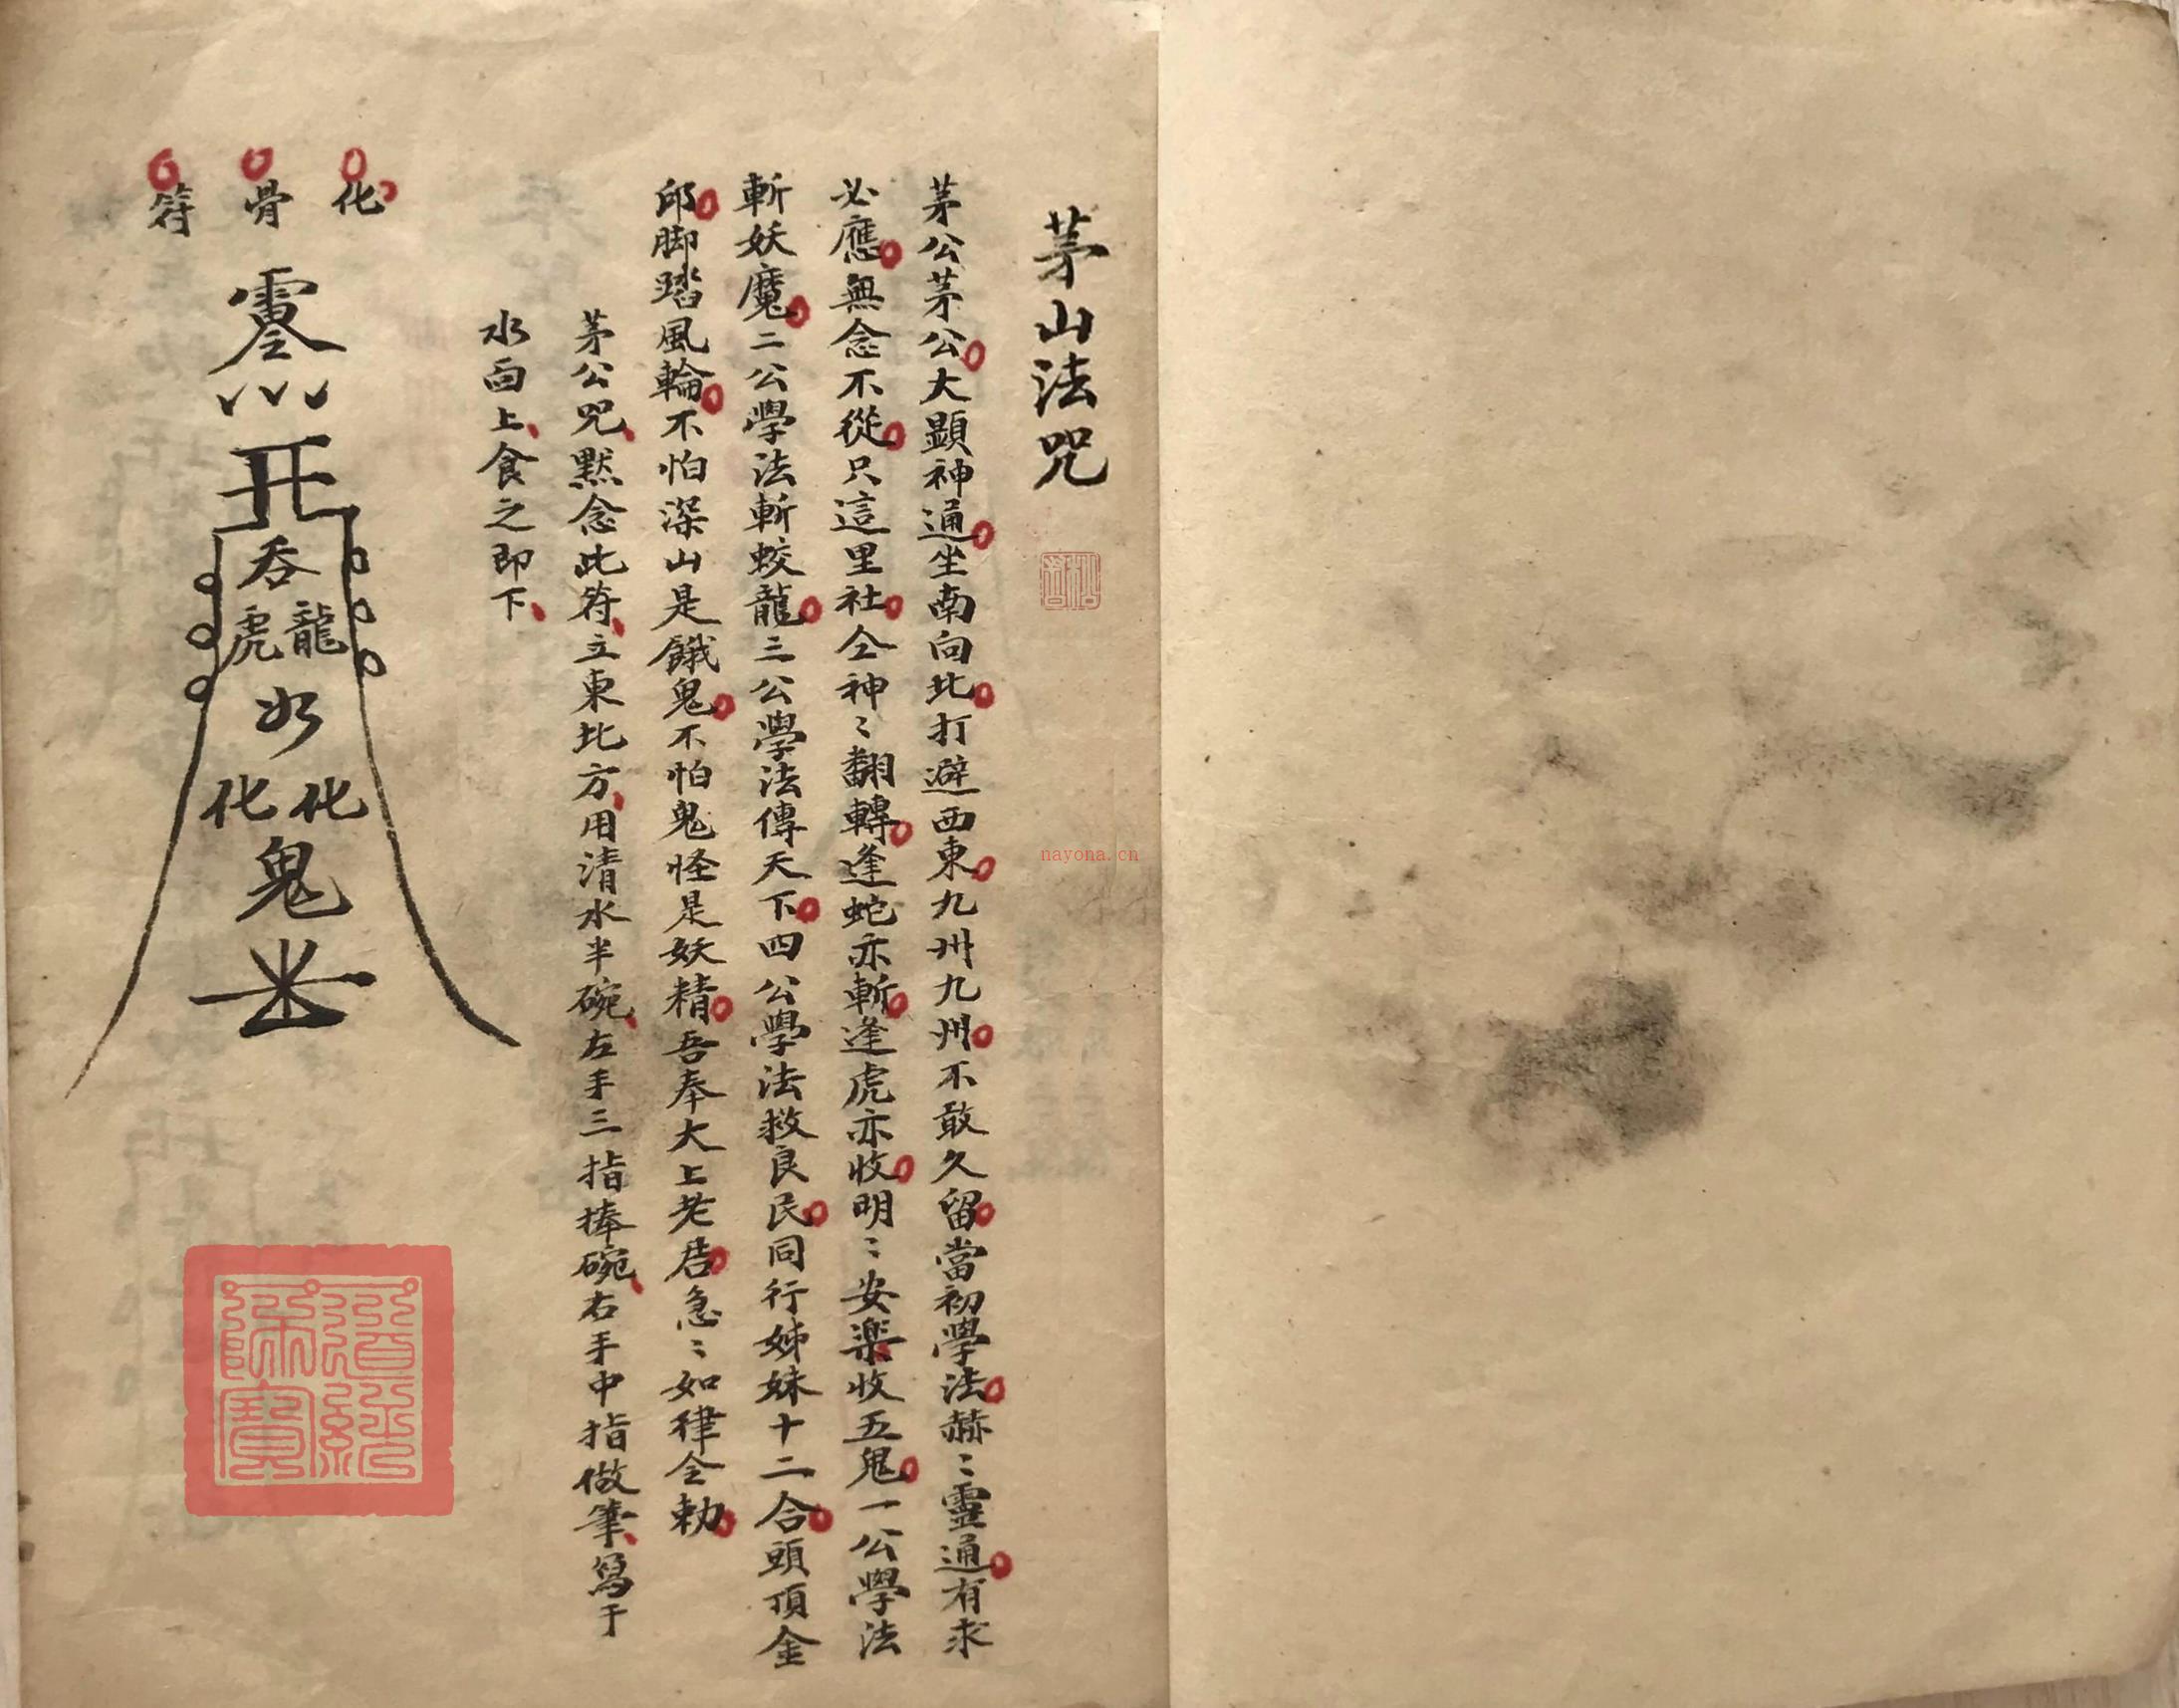 茅山法咒
茅公茅公大顯神通坐南向北打避西東九州九州不敢久留當初學法赫〻靈通有求
必應無念不從只這里社仝神〻翻轉逢蛇亦斬逢虎亦收明〻安楽收五鬼一公學法
斬妖魔二公學法斬蛟龍三公學法傳天下四公學法救良民同行姊妹十二合頭頂金
邱脚踏風輪不怕深山是餓鬼不怕鬼怪是妖精吾奉大上老君急〻如律令勅
茅公咒默念此符立東北方用清水半碗左手三指捧碗右手中指做筆寫于
水面上食之即下
化骨符
吞
龍虎
化化
鬼
道經師寶
nayona.cn